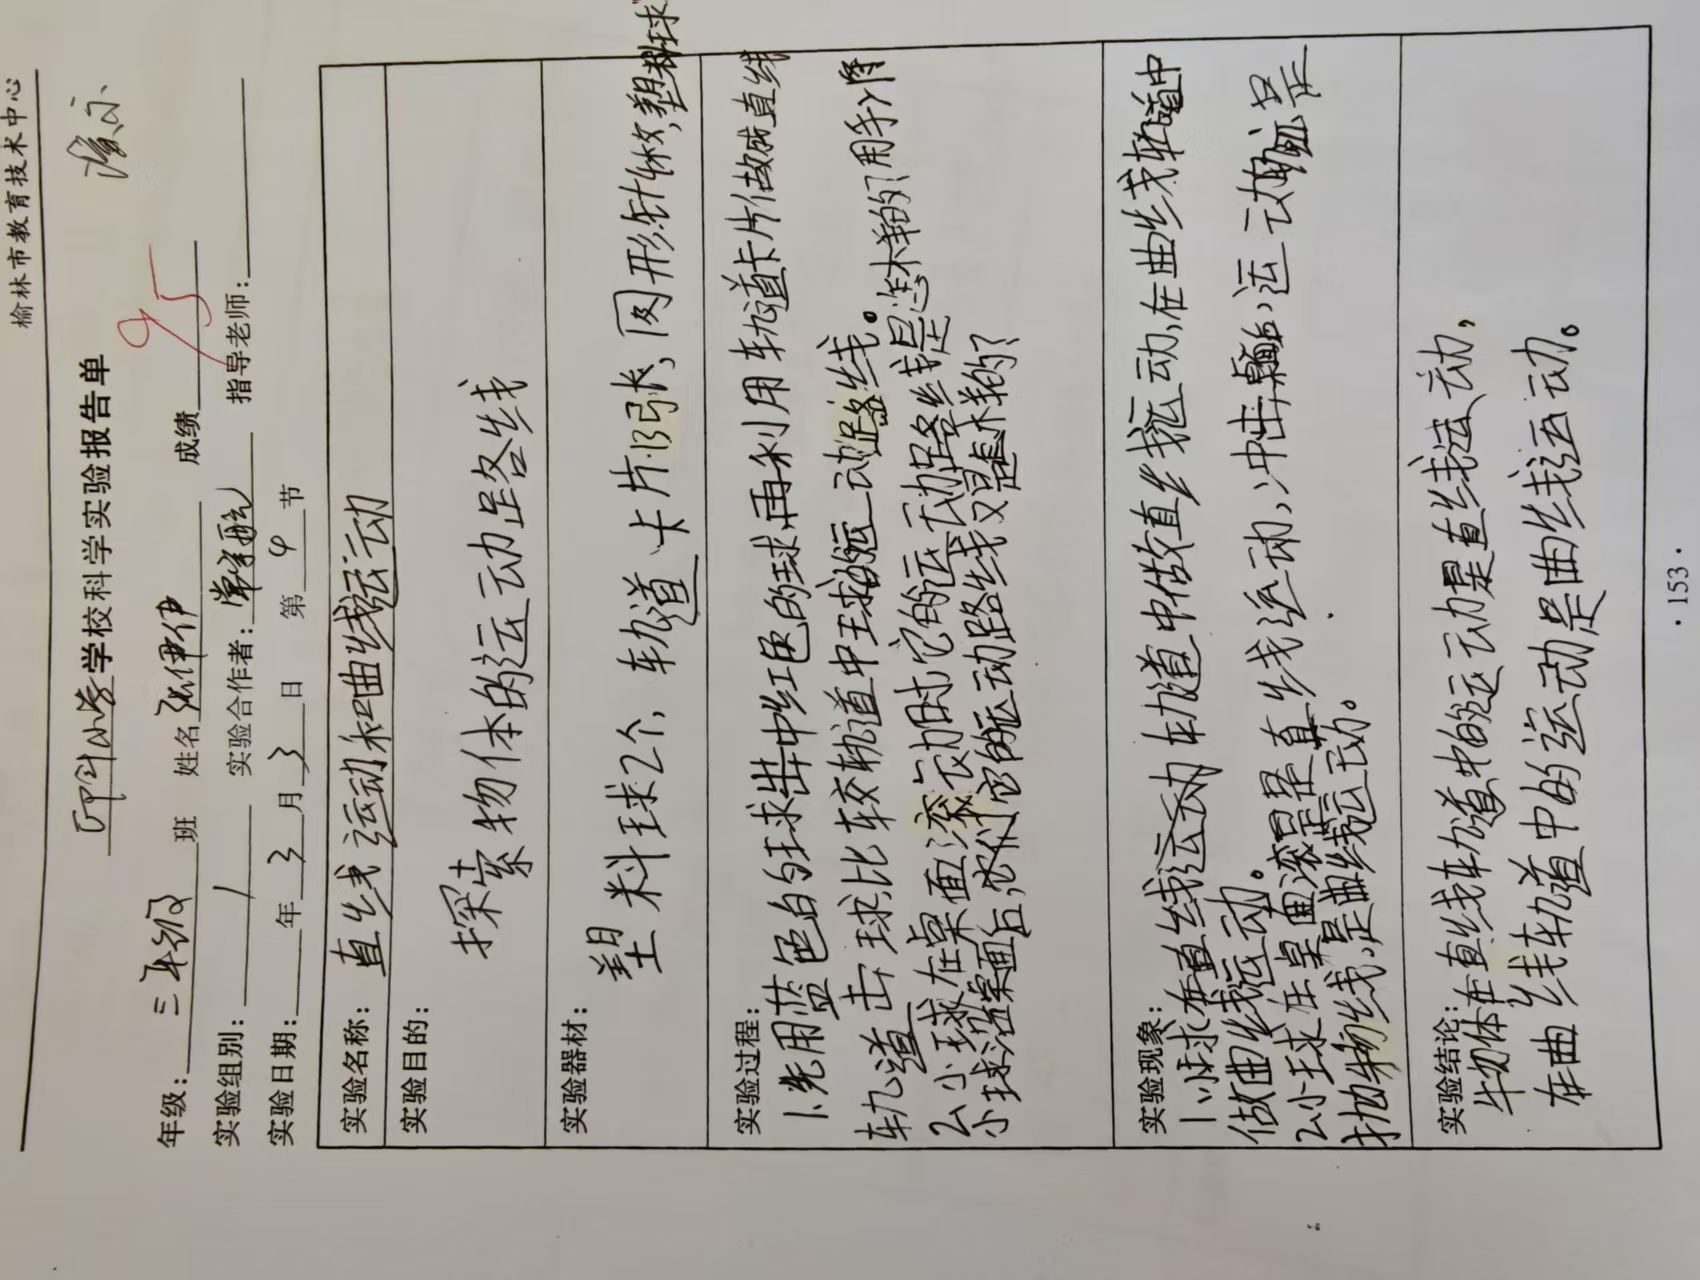 榆林市教育技术中心
小学学校科学实验报告单
年级：三年级 班 姓名 成绩 95
实验组别：1 实验合作者： 指导老师：
实验日期： 年3月3日 第4节
实验名称：直线运动和曲线运动
实验目的：
探索物体的运动路线
实验器材：
塑料球2个，轨道卡片 张，
实验过程：
1.先用蓝色的球击中红色的球,再利用轨道卡片做成直线
轨道击球比较轨道中球的运动路线。
2.小球在桌面滚动时它的运动路线是怎样的？用手
小球沿桌面 它的运动路线又是 样的？
实验现象：
1.小球在直线运动轨道中做直线运动,在曲线轨道中
做曲线运动。
2.小球在桌面滚 是直线运动,冲出桌面,运动 是
抛物线,是曲线运动。
实验结论：
物体在直线轨道中的运动是直线运动，
在曲线轨道中的运动是曲线运动。
·153·